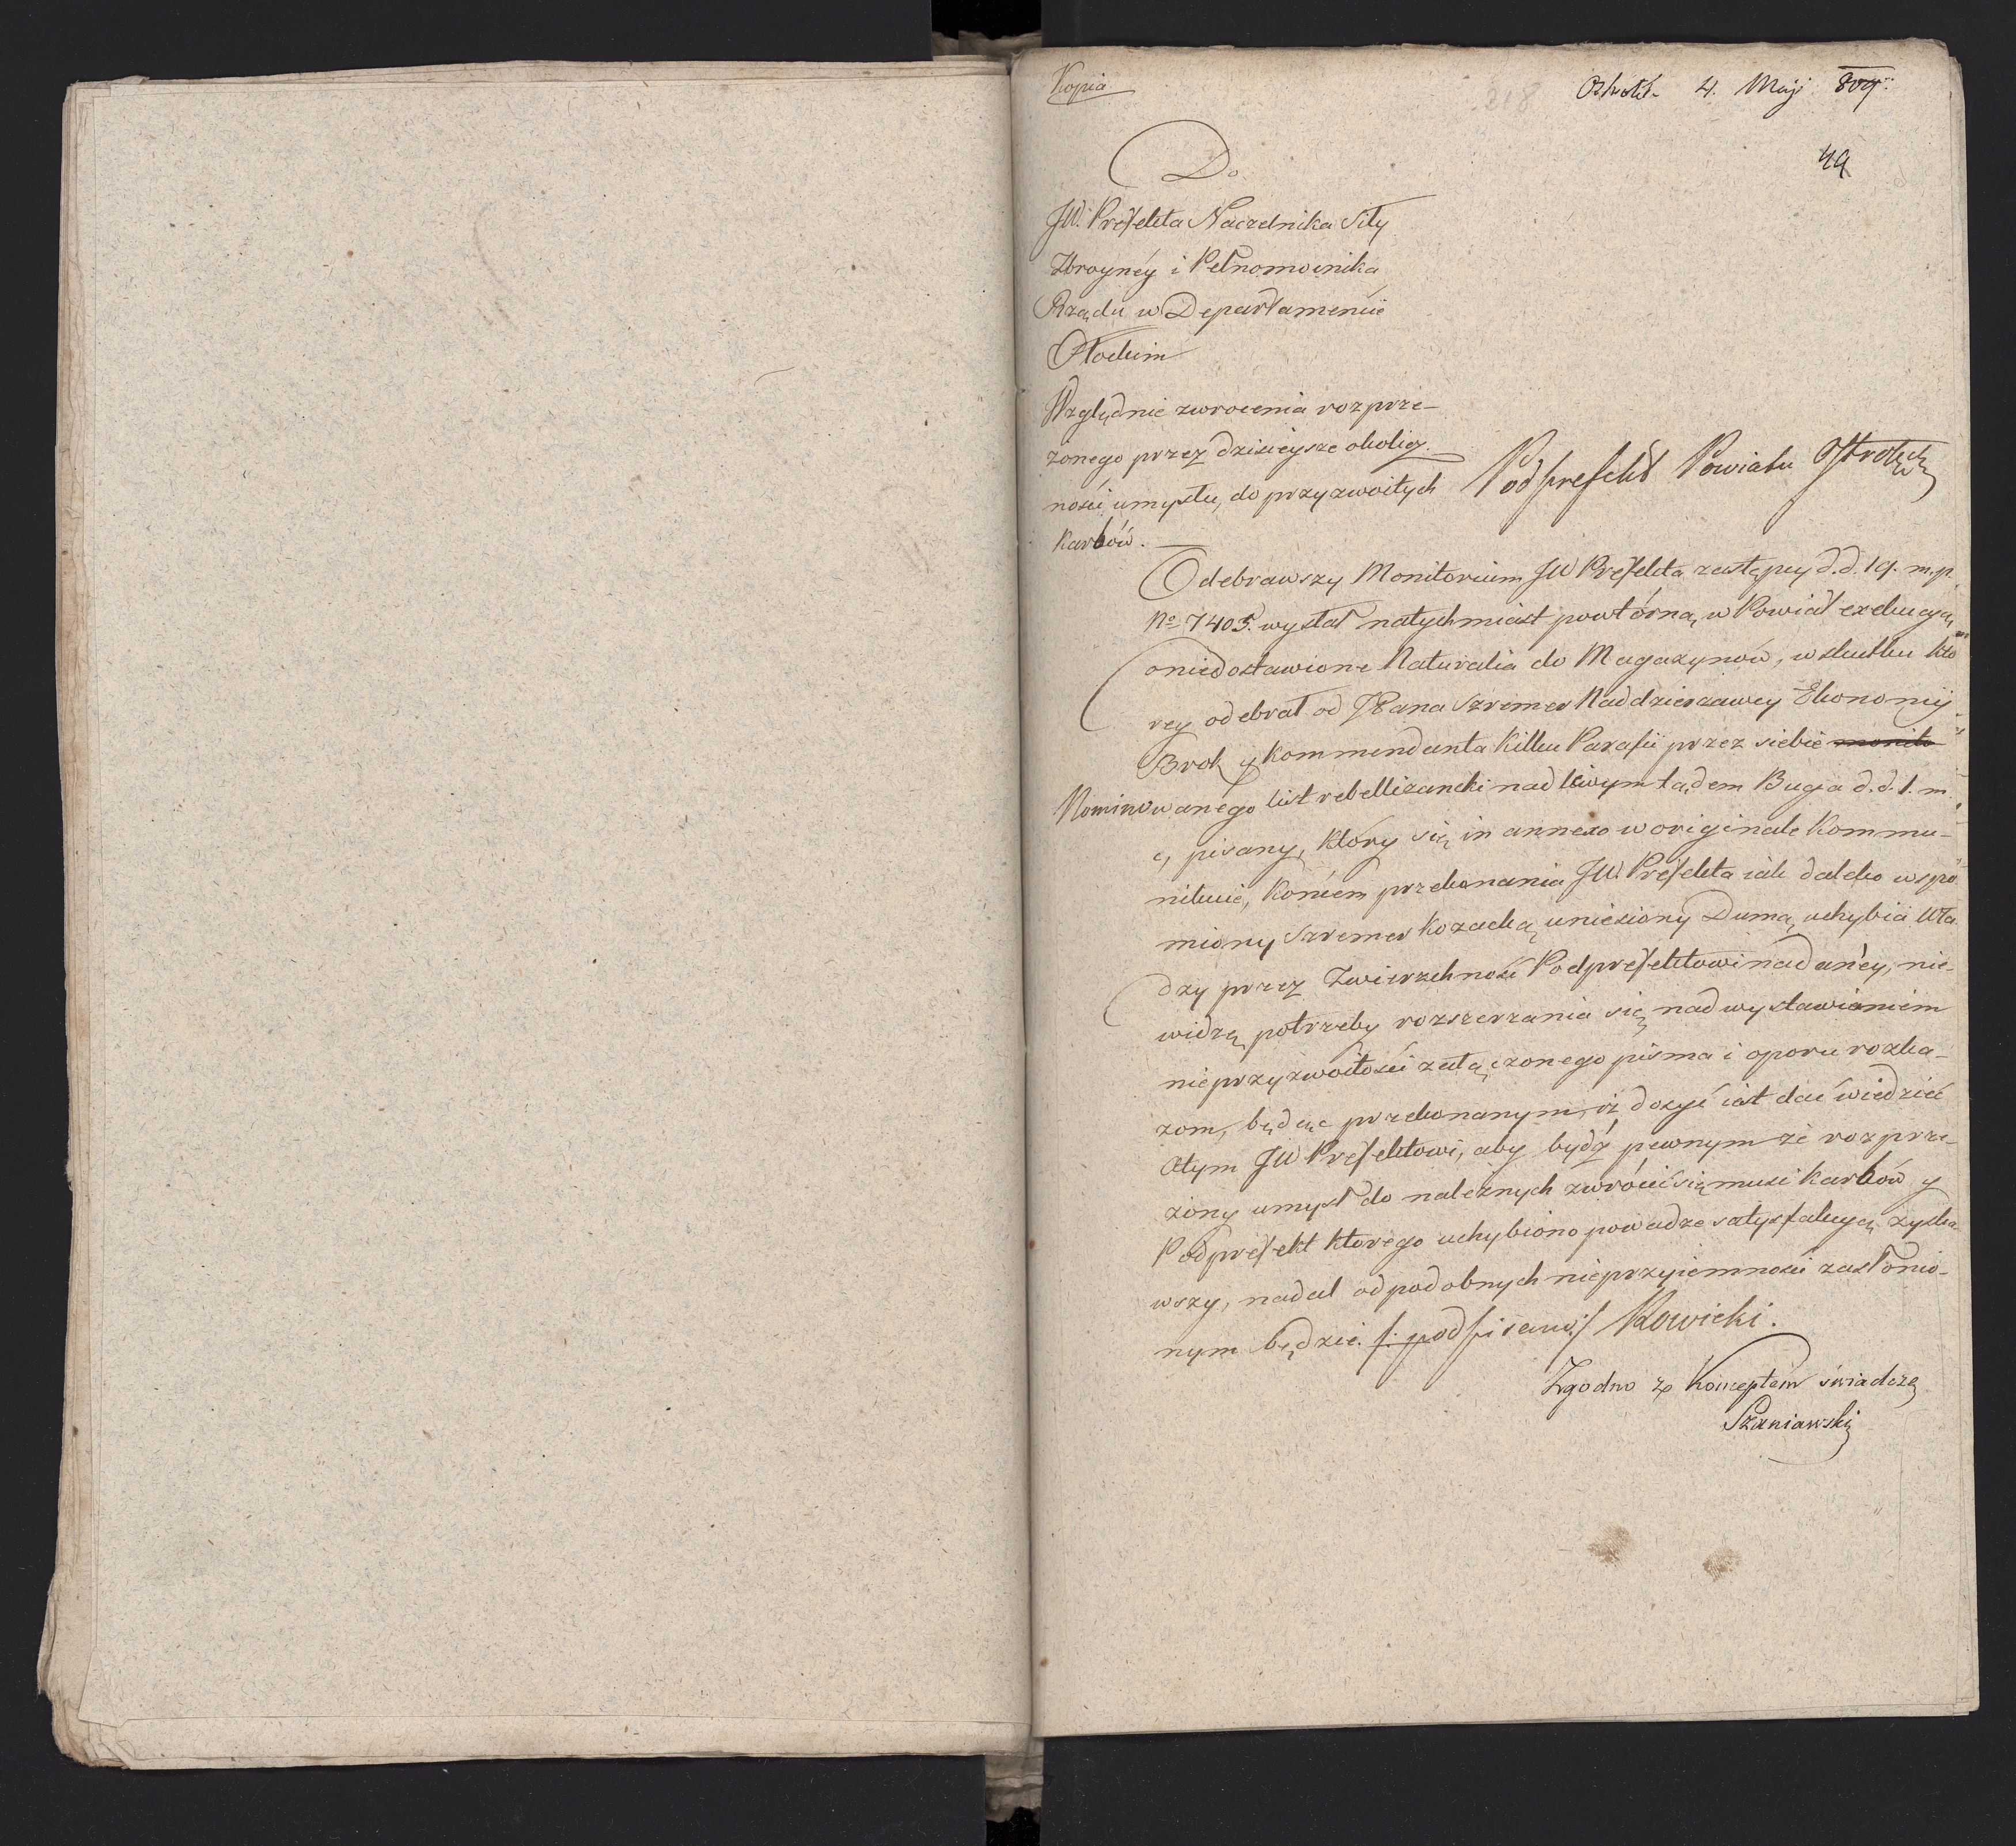 Kopia
4. Maji 809.
218
49
Do
JW. Prefekta Naczelnika Siły
Zbroyney i Pełnomocnika
Rządu w Departamencie
Płockim
Względnie zwrocenia rozprze-
żonego przez dzisieysze okolicz-
ności umysłu, do przyzwoitych
Karbów.
Podprefekt Powiatu
Odebrawszy Monitorium JW Prefekta zastępcy d.d. 19. m. p.
No 7405. wysłał natychmiast powtórną w Powiat exekucyą
o niedostawione Naturalia do Magazynów, w skutku kto
rey odebrał od JPana Szremer Naddzierzawcy Ekonomij
Brok y Kommendanta Kilku Parafii przez siebie monito
Nominowanego list rebellizancki nad lewym lądem Buga d.d. 1. m.
c, pisany, który się in annexo w originale Kommu-
nikuie, Koncem przekonania JW. Prefekta iak daleko wspo
miony Szremer Kozacką uniesiony Dumą uchybia Wła
dzy przez Zwierzchność Podprefektowi nadaney, nie-
widzę potrzeby rozszerzania się nad wystawianiem
nieprzyzwoitości załączonego pisma i oporu rozka-
zom, będąc przekonanym, iż dosyć iest dać wiedzieć
otym JW Prefektowi, aby bydź pewnym że rozprze-
żony umysł do należnych zwrócić się musi Karbów y
Podprefekt ktorego uchybiono powadze satysfakcyą zyska
wszy, nadal od podobnych nieprzyiemności zasłonio-
nym będzie. /: podpisano :/ Rowicki.
Zgodno ze Konceptem świadczę
Szaniawski